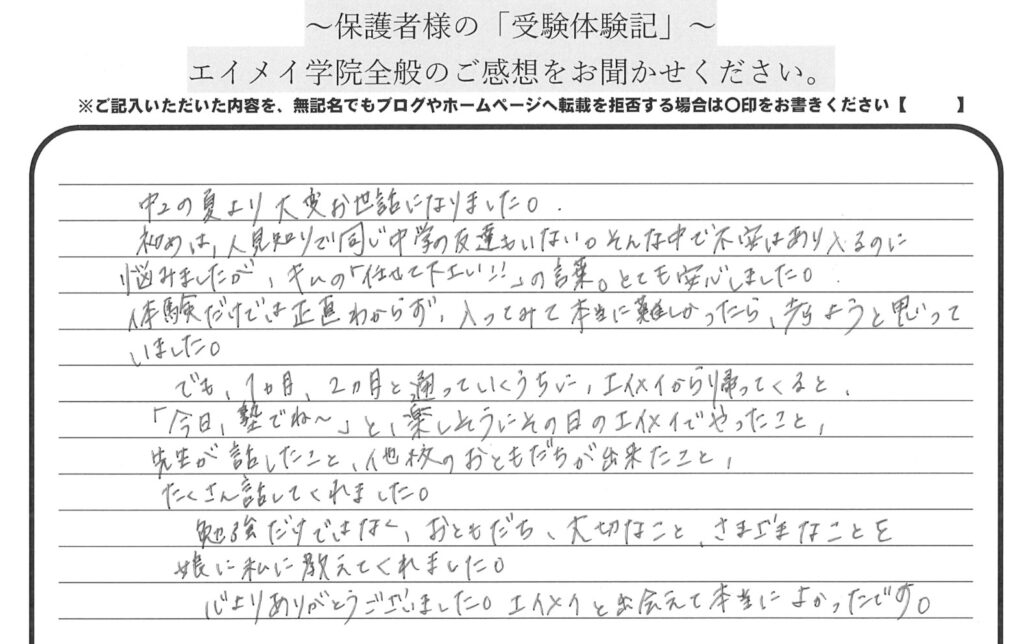 ～保護者様の「受験体験記」～
エイメイ学院全般のご感想をお聞かせください。
※ご記入いただいた内容を、無記名でもブログやホームページへ転載を拒否する場合は〇印をお書きください【　　　】
中2の夏より大変お世話になりました。
初めは、人見知りで同じ中学の友達もいない。そんな中で不安はあり入るのに
悩みましたが、キムの「任せて下さい!!」の言葉。とても安心しました。
体験だけでは正直わからず、入ってみて本当に難しかったら、考ようと思って
いました。
でも、1ヵ月、2ヵ月と通っていくうちに、エイメイから帰ってくると、
「今日、塾でね～」と、楽しそうにその日のエイメイでやったこと、
先生が話したこと、他校のおともだちが出来たこと、
たくさん話してくれました。
勉強だけではなく、おともだち、大切なこと、さまざまなことを
娘に私に教えてくれました。
心よりありがとうございました。エイメイと出会えて本当によかったです。